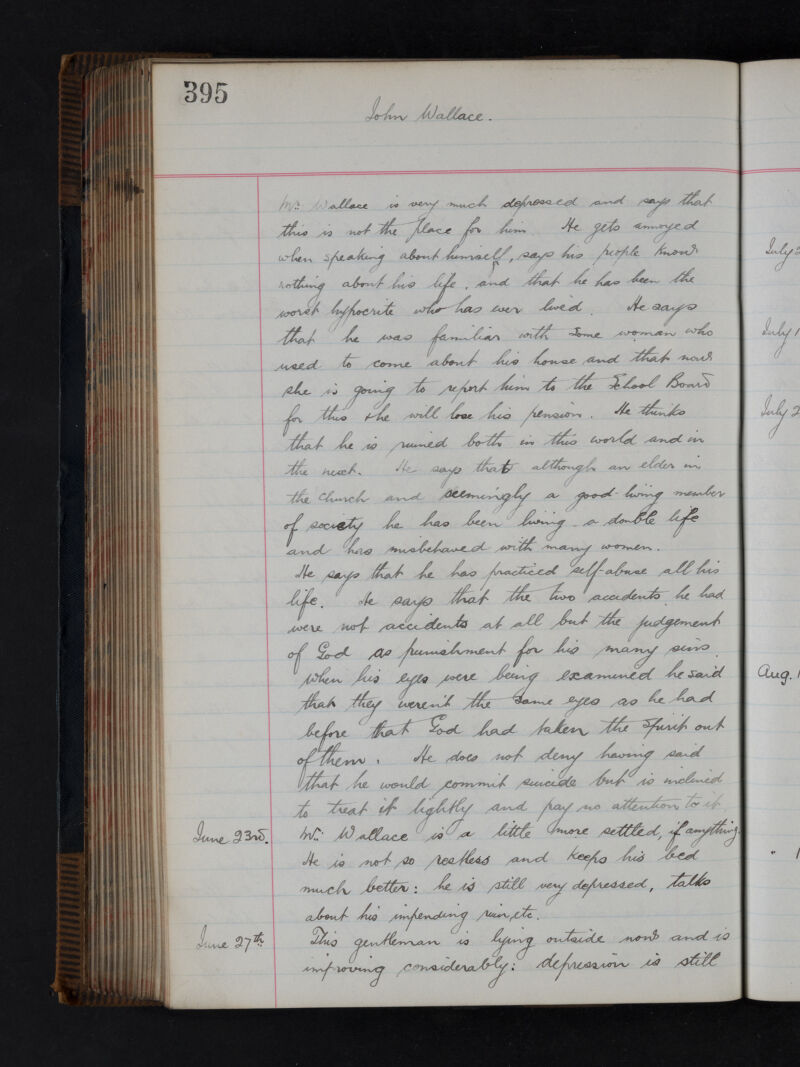 395
John Wallace.
Mr. Wallace is very much depressed and says that
this is not the place for him He gets annoyed
when speaking about himself, says his people know
nothing about his life, and that he has been the
worst hypocrite who has ever lived. He says
that he was familiar with some woman who
used to come about his house and that now
she is going to report him to the School Board
for this & he will lose his pension. He thinks
that he is ruined both in this world and in
the next. He says that although an elder in
the church and seemingly a good-living member
of society he has been living a double life
and has misbehaved with many women.
He says that he has practiced self-abuse all his
life. He says that the two accidents he had
were not accidents at all but the judgement
of God as punishment for his many sins.
When his eyes were being examined he said
that they weren't the same eyes as he had
before that God had taken the spirit out
of them. He does not deny having said
that he would commit suicide but is inclined
to treat it lightly and pay no attention to it.
June 23rd. Mr. Wallace is a little more settled, if anything.
He is not so restless and keeps his bed
much better: he is still very depressed, talks
about his impending ruin, etc.
June 27th This gentleman is lying outside now and is
improving considerably: depression is still
July 2
July 1
July 2
Aug. 1
" 1